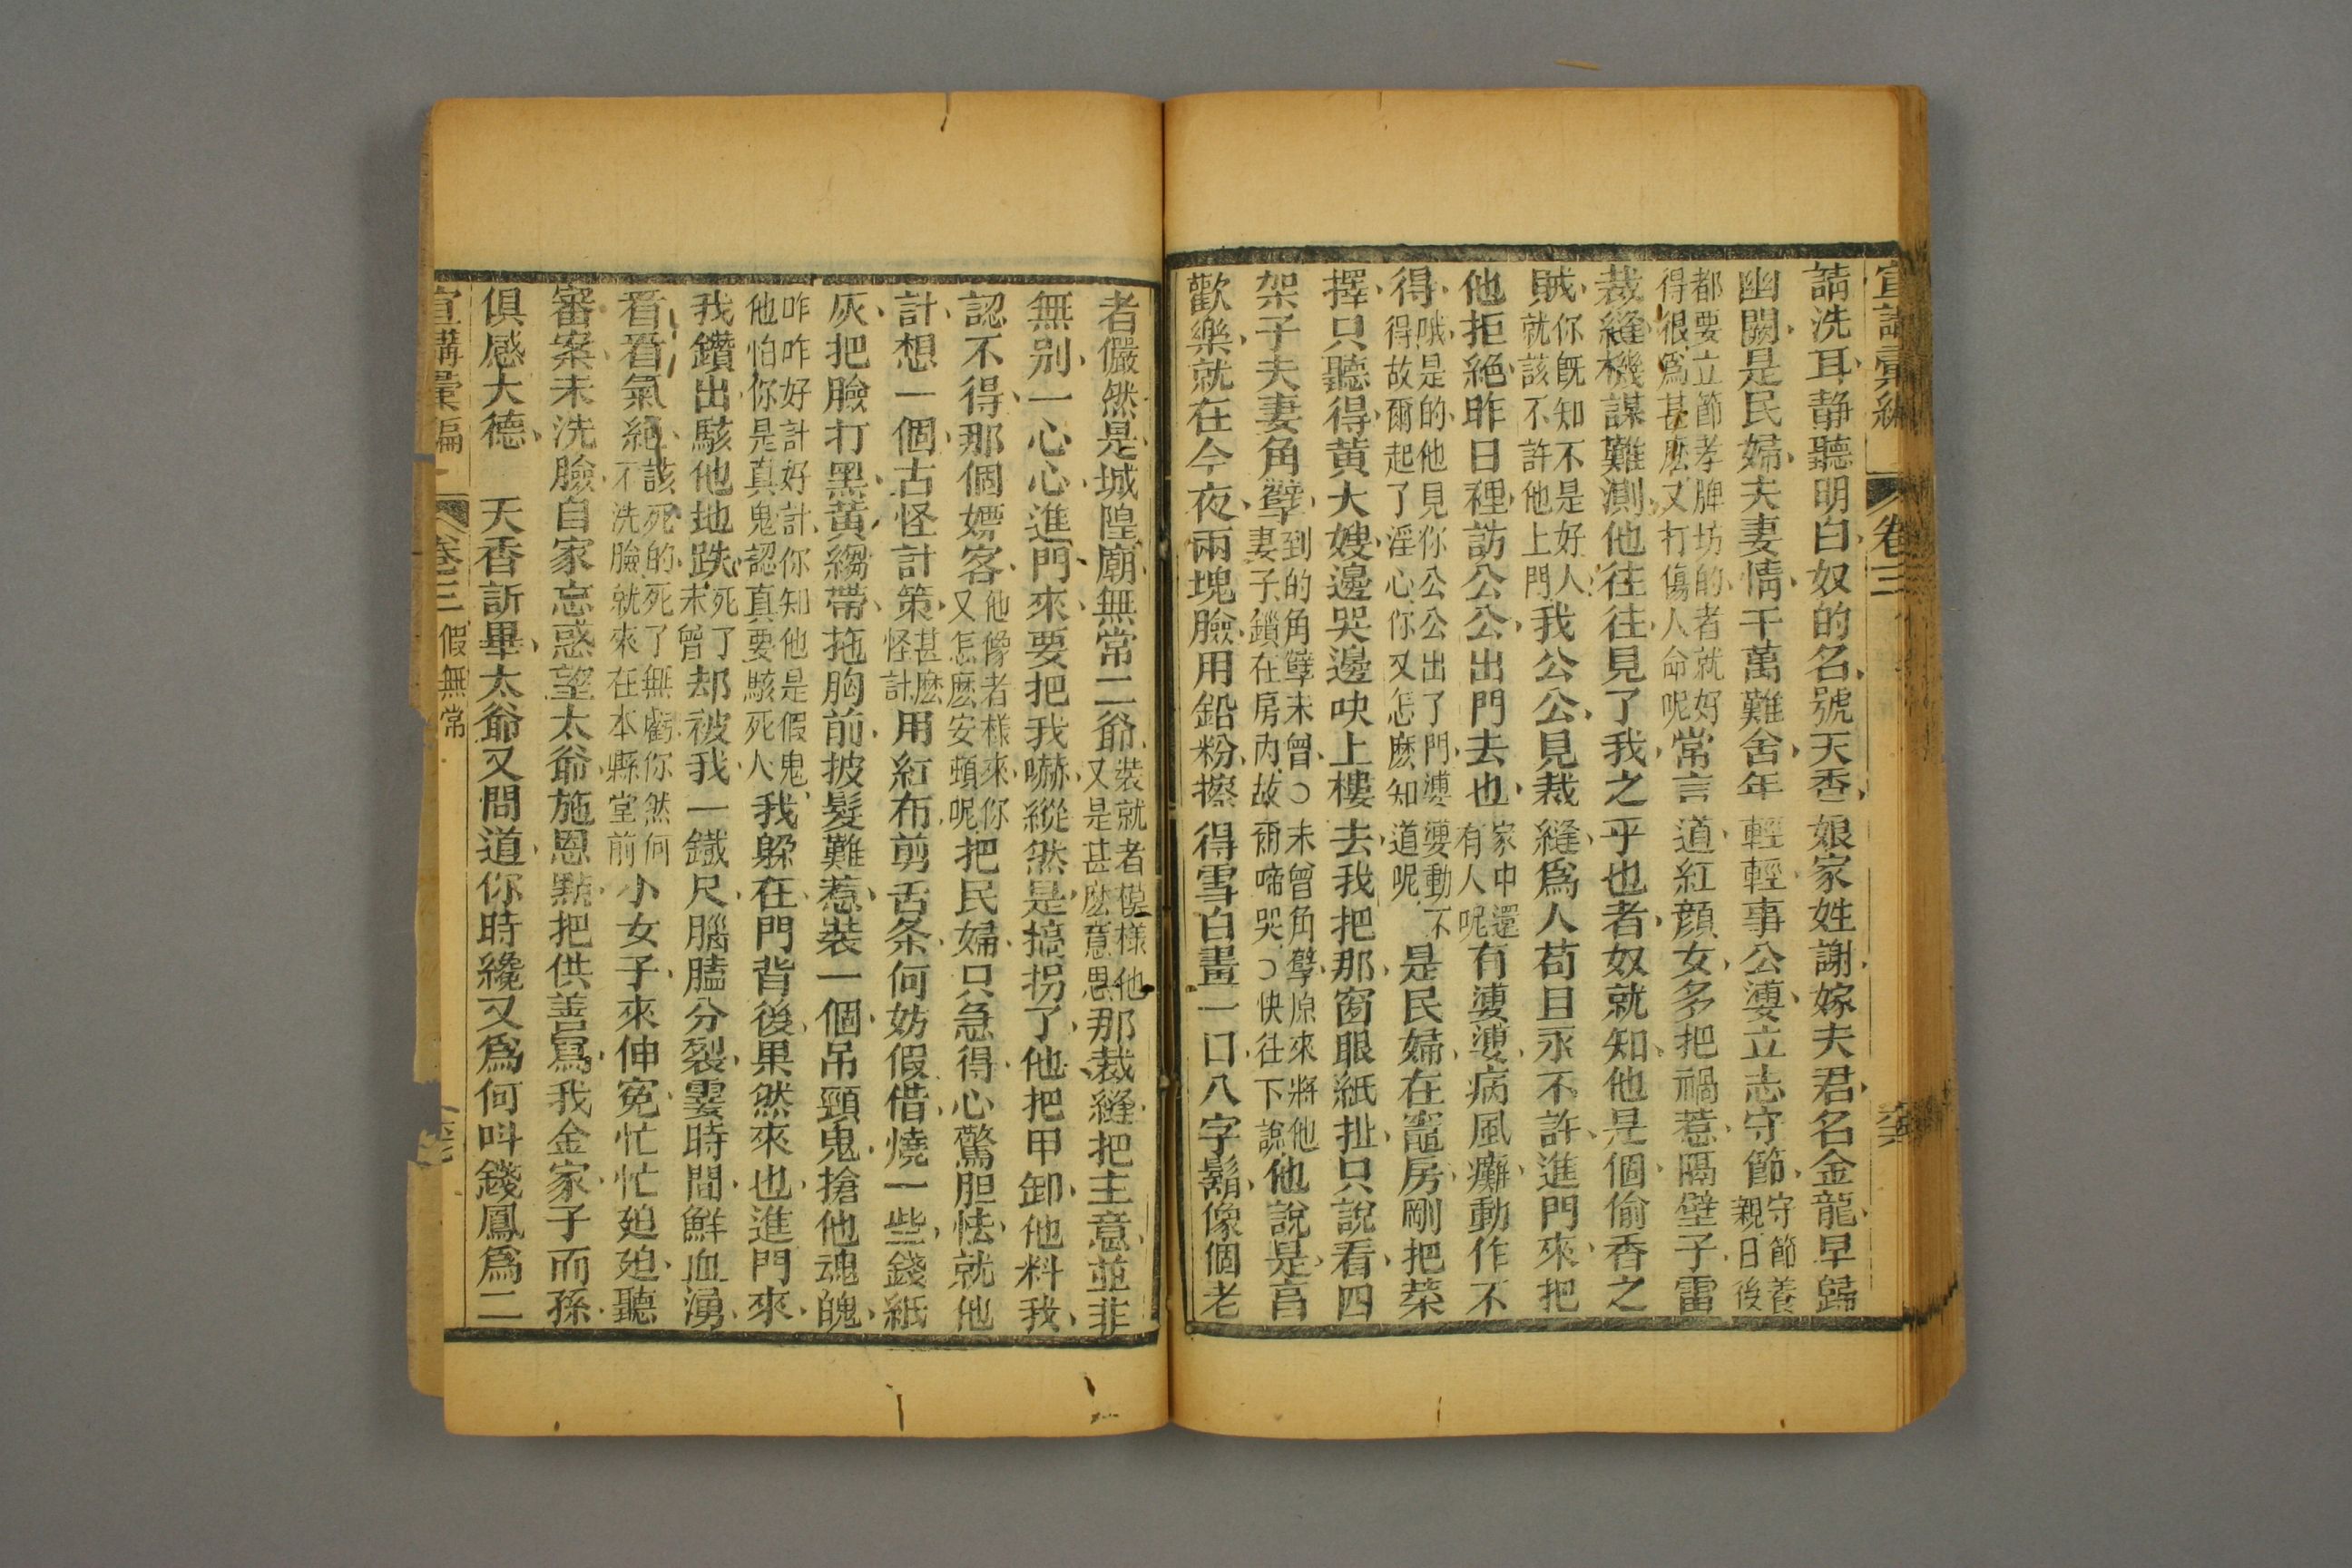 宣講彙編 卷三 六六
請洗耳靜聽明白奴的名號天香娘家姓謝嫁夫君名金龍早歸
幽關是民婦夫妻情千萬難舍年輕輕事公婆立志守節守節養親日後
都要立節孝牌坊的者就好得很爲甚麽又打傷人命呢常言道紅顔女多把禍惹隔壁子雷
裁縫機謀難測他往往見了我之乎也者奴就知他是個偷香之
賊你旣知不是好人就該不許他上門我公公見裁縫爲人苟且永不許進門來把
他拒絕昨日裡訪公公出門去也家中還有人呢有婆婆病風癱動作不
得哦是的他見你公公出了門婆婆動不得故爾起了淫心你又怎麽知道呢是民婦在竈房剛把菜
擇只聽得黄大嫂邊哭邊吷上樓去我把那窗眼紙扯只說看四
架子夫妻角孽到的角孽未曾○未曾角孽原來將他妻子鎖在房內故爾啼哭○快往下說他說是高
歡樂就在今夜兩塊臉用鉛粉擦得雪白畫一口八字鬍像個老
者儼然是城隍廟無常二爺裝就者模樣他又是甚麽意思那裁縫把主意並非
無别一心心進門來要把我嚇縱然是搞拐了他把甲卸他料我
認不得那個嫖客他像者樣來你又怎麽安頓呢把民婦只急得心驚胆怯就他
計想一個古怪計策甚麽怪計用紅布剪舌条何妨假借燒一些錢紙
灰把臉打黑黄縐帶拖胸前披髮難惹裝一個吊頸鬼搶他魂魄
咋咋好計好計你知他是假鬼他怕你是真鬼認真要駭死人我躱在門背後果然來也進門來
我鑽出駭他地跌死了未曾却被我一鐵尺腦膸分裂霎時間鮮血湧
看看氣絕該死的死了無虧你然何不洗臉就來在本縣堂前小女子來伸寃忙忙廹廹聽
審案未洗臉自家忘惑望太爺施恩點把供善寫我金家子而孫
俱感大德 天香訴畢太爺又問道你時纔又爲何呌錢鳳爲二
宣講彙編 卷三 假無常